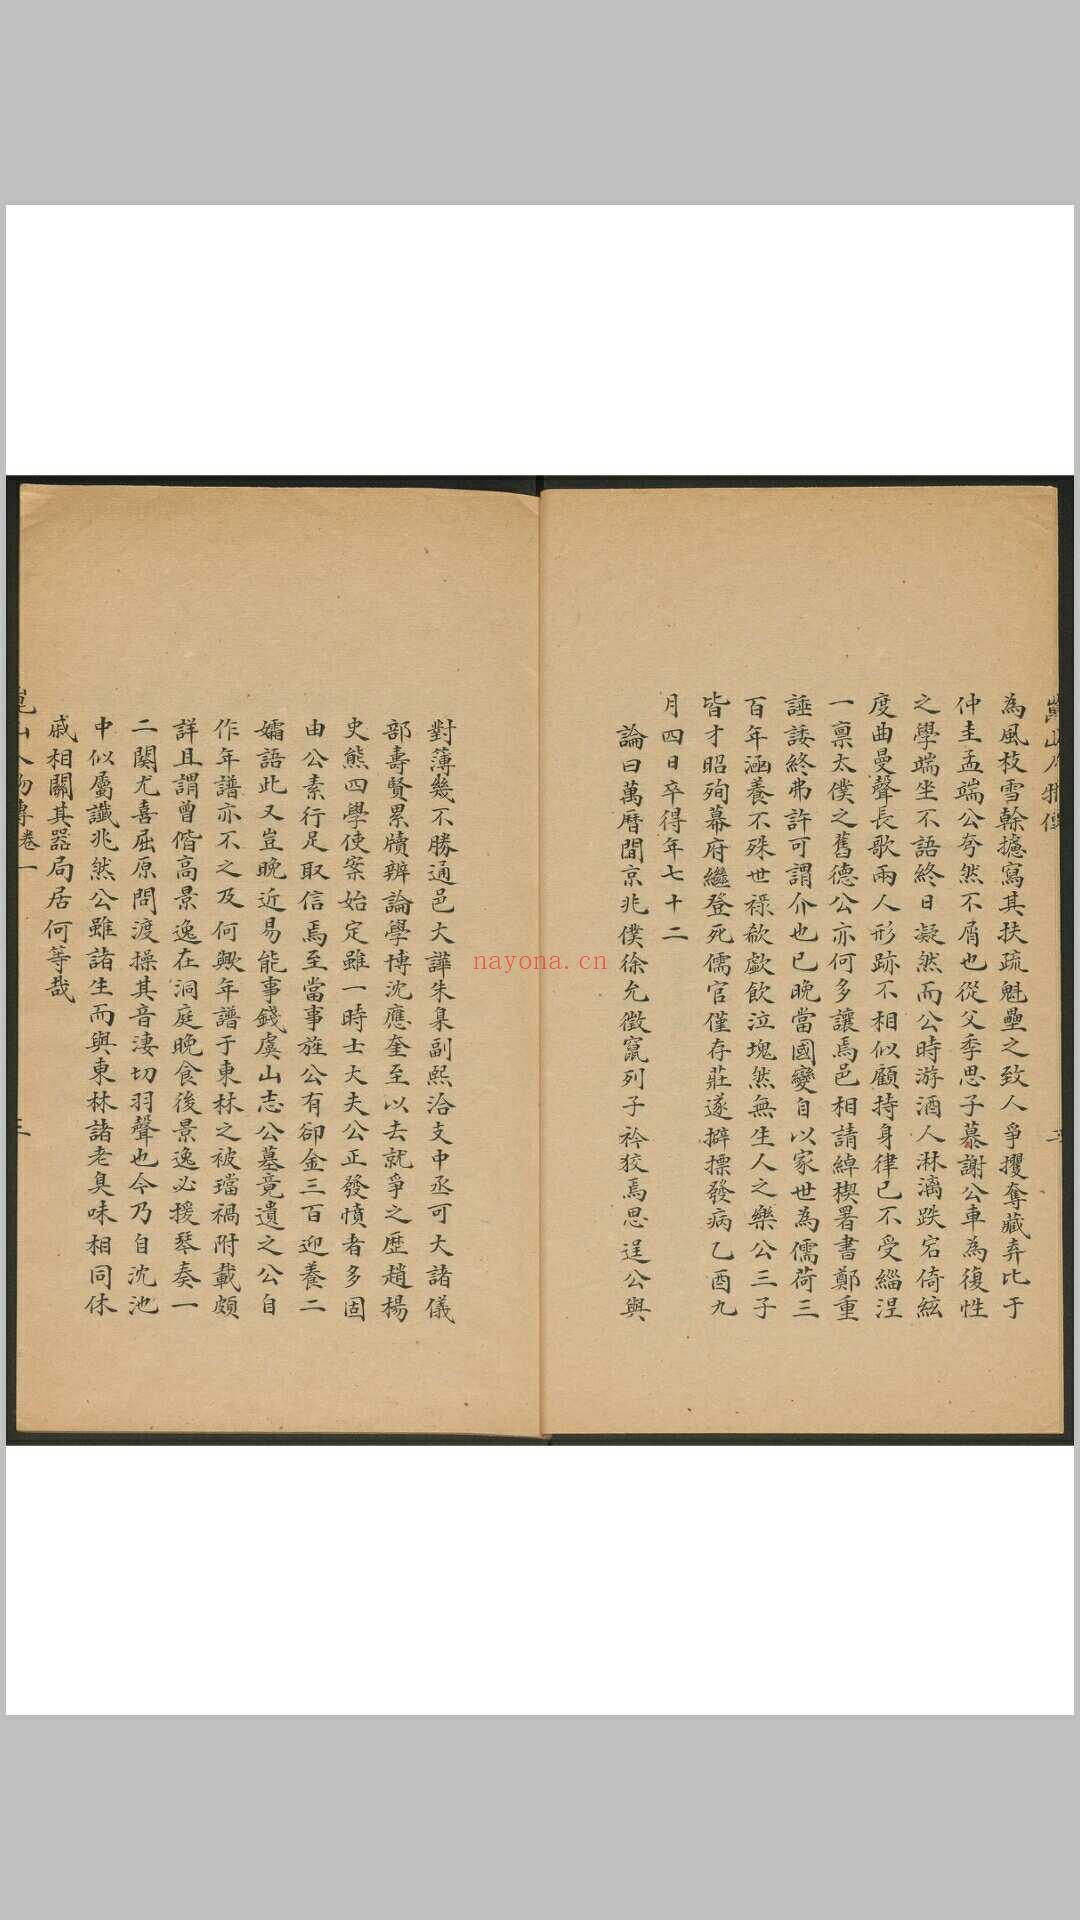 為風枝雪榦攄寫其扶疏魁壘之致人爭攫奪藏弆比于
仲圭孟端公夸然不屑也從父季思子慕謝公車為復性
之學端坐不語終日凝然而公時游酒人淋漓跌宕倚絃
度曲曼聲長歌兩人形跡不相似顧持身律己不受緇涅
一禀太僕之舊德公亦何多讓焉邑相請綽楔署書鄭重
諈諉終弗許可謂介也已晚當國變自以家世為儒荷三
百年涵養不殊世祿欷歔飲泣塊然無生人之樂公三子
皆才昭殉幕府繼登死儒官僅存莊遂擗摽發病乙酉九
月四日卒得年七十二
論曰萬曆間京兆僕徐允徵竄列子衿狡焉思逞公與
對簿幾不勝通邑大譁朱臬副熙洽支中丞可大諸儀
部壽賢累牘辨論學博沈應奎至以去就爭之歷趙楊
史熊四學使案始定雖一時士大夫公正發憤者多固
由公素行足取信焉至當事旌公有卻金三百迎養二
孀語此又豈晚近易能事錢虞山志公墓竟遺之公自
作年譜亦不之及何歟年譜于東林之被璫禍附載頗
詳且謂曾偕高景逸在洞庭晚食後景逸必援琴奏一
二闋尤喜屈原問渡操其音淒切羽聲也今乃自沈池
中似屬讖兆然公雖諸生而與東林諸老臭味相同休
戚相關其器局居何等哉
崑山人物傳卷一
三
nayona.cn